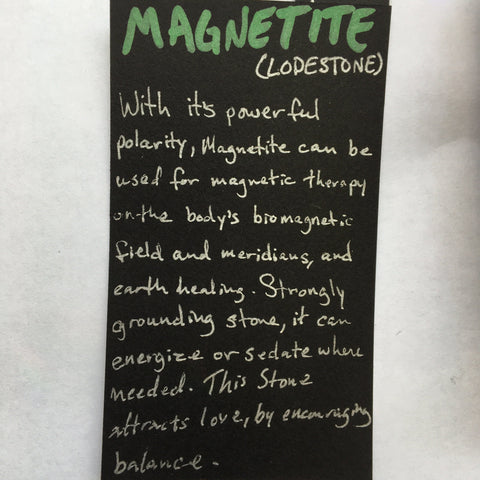 MAGNETITE
(LODESTONE)
With it's powerful
polarity, Magnetite can be
used for magnetic therapy
on the body's biomagnetic
field and meridians, and
earth healing. Strongly
grounding stone, it can
energize or sedate where
needed. This Stone
attracts love, by encouraging
balance.